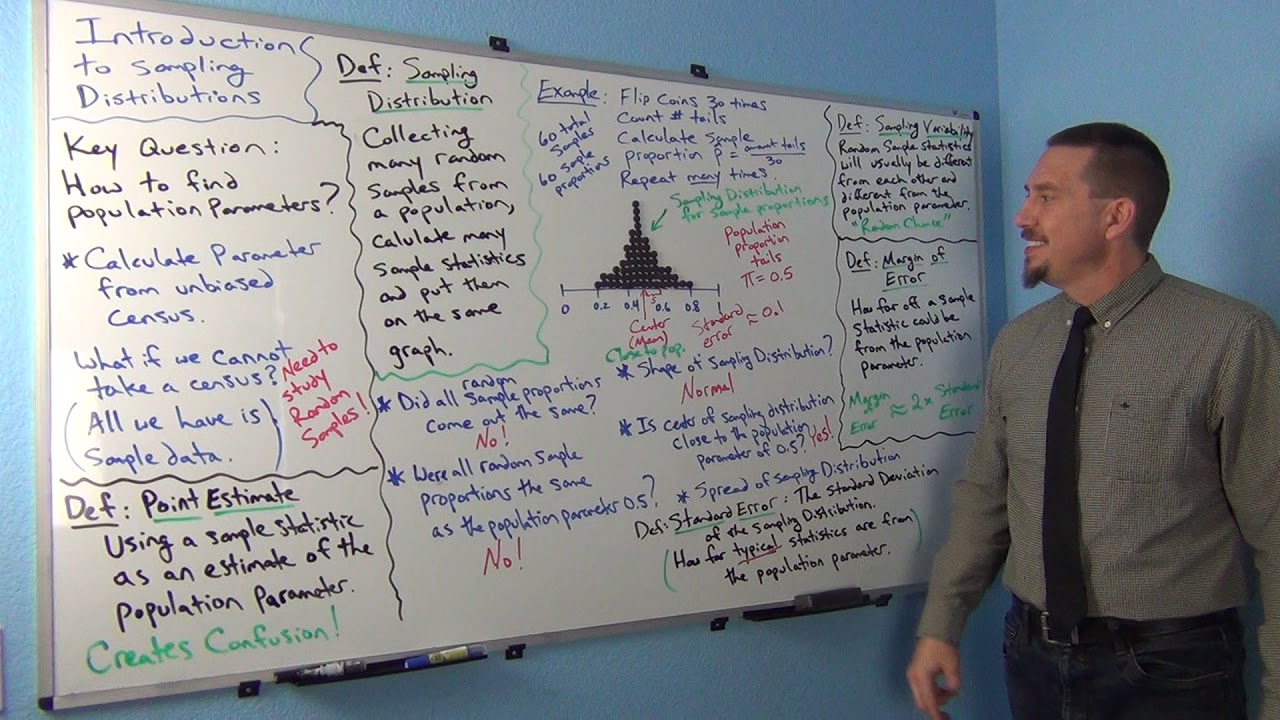 Introduction
to Sampling
Distributions
Key Question:
How to find
population Parameters?
* Calculate Parameter
from unbiased
census.
What if we cannot
take a census?
(All we have is
sample data.)
Need to
study
Random
Samples!
Def: Point Estimate
Using a sample statistic
as an estimate of the
population Parameter.
Creates Confusion!
Def: Sampling
Distribution
Collecting
many random
samples from
a population,
calulate many
sample statistics
and put them
on the same
graph.
* Did all random sample proportions
come out the same?
No!
* Were all random sample
proportions the same
as the population parameter 0.5?
No!
Example: Flip Coins 30 times
Count # tails
Calculate sample
proportion p̂ = amount tails/30
Repeat many times.
60 total
samples
60 sample
proportions
Sampling Distribution
for sample proportions
Population
proportion
tails
π = 0.5
0 0.2 0.4 0.6 0.8 1
.5
Center
(Mean)
Close to pop.
Standard
error ≈ 0.1
* Shape of Sampling Distribution?
Normal
* Is center of sampling distribution
close to the population
parameter of 0.5? Yes!
* Spread of sampling Distribution
Def: Standard Error: The standard Deviation
of the sampling Distribution.
(How far typical statistics are from
the population parameter.)
Def: Sampling Variability
Random Sample Statistics
will usually be different
from each other and
different from the
population parameter.
"Random Chance"
Def: Margin of
Error
How far off a sample
statistic could be
from the population
parameter.
Margin
of
Error ≈ 2x Standard
Error